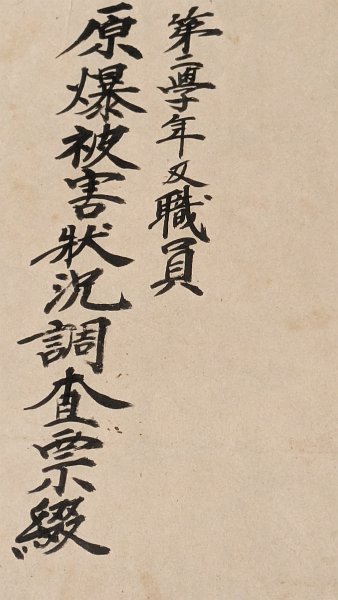 第二學年及職員
原爆被害狀況調査票綴